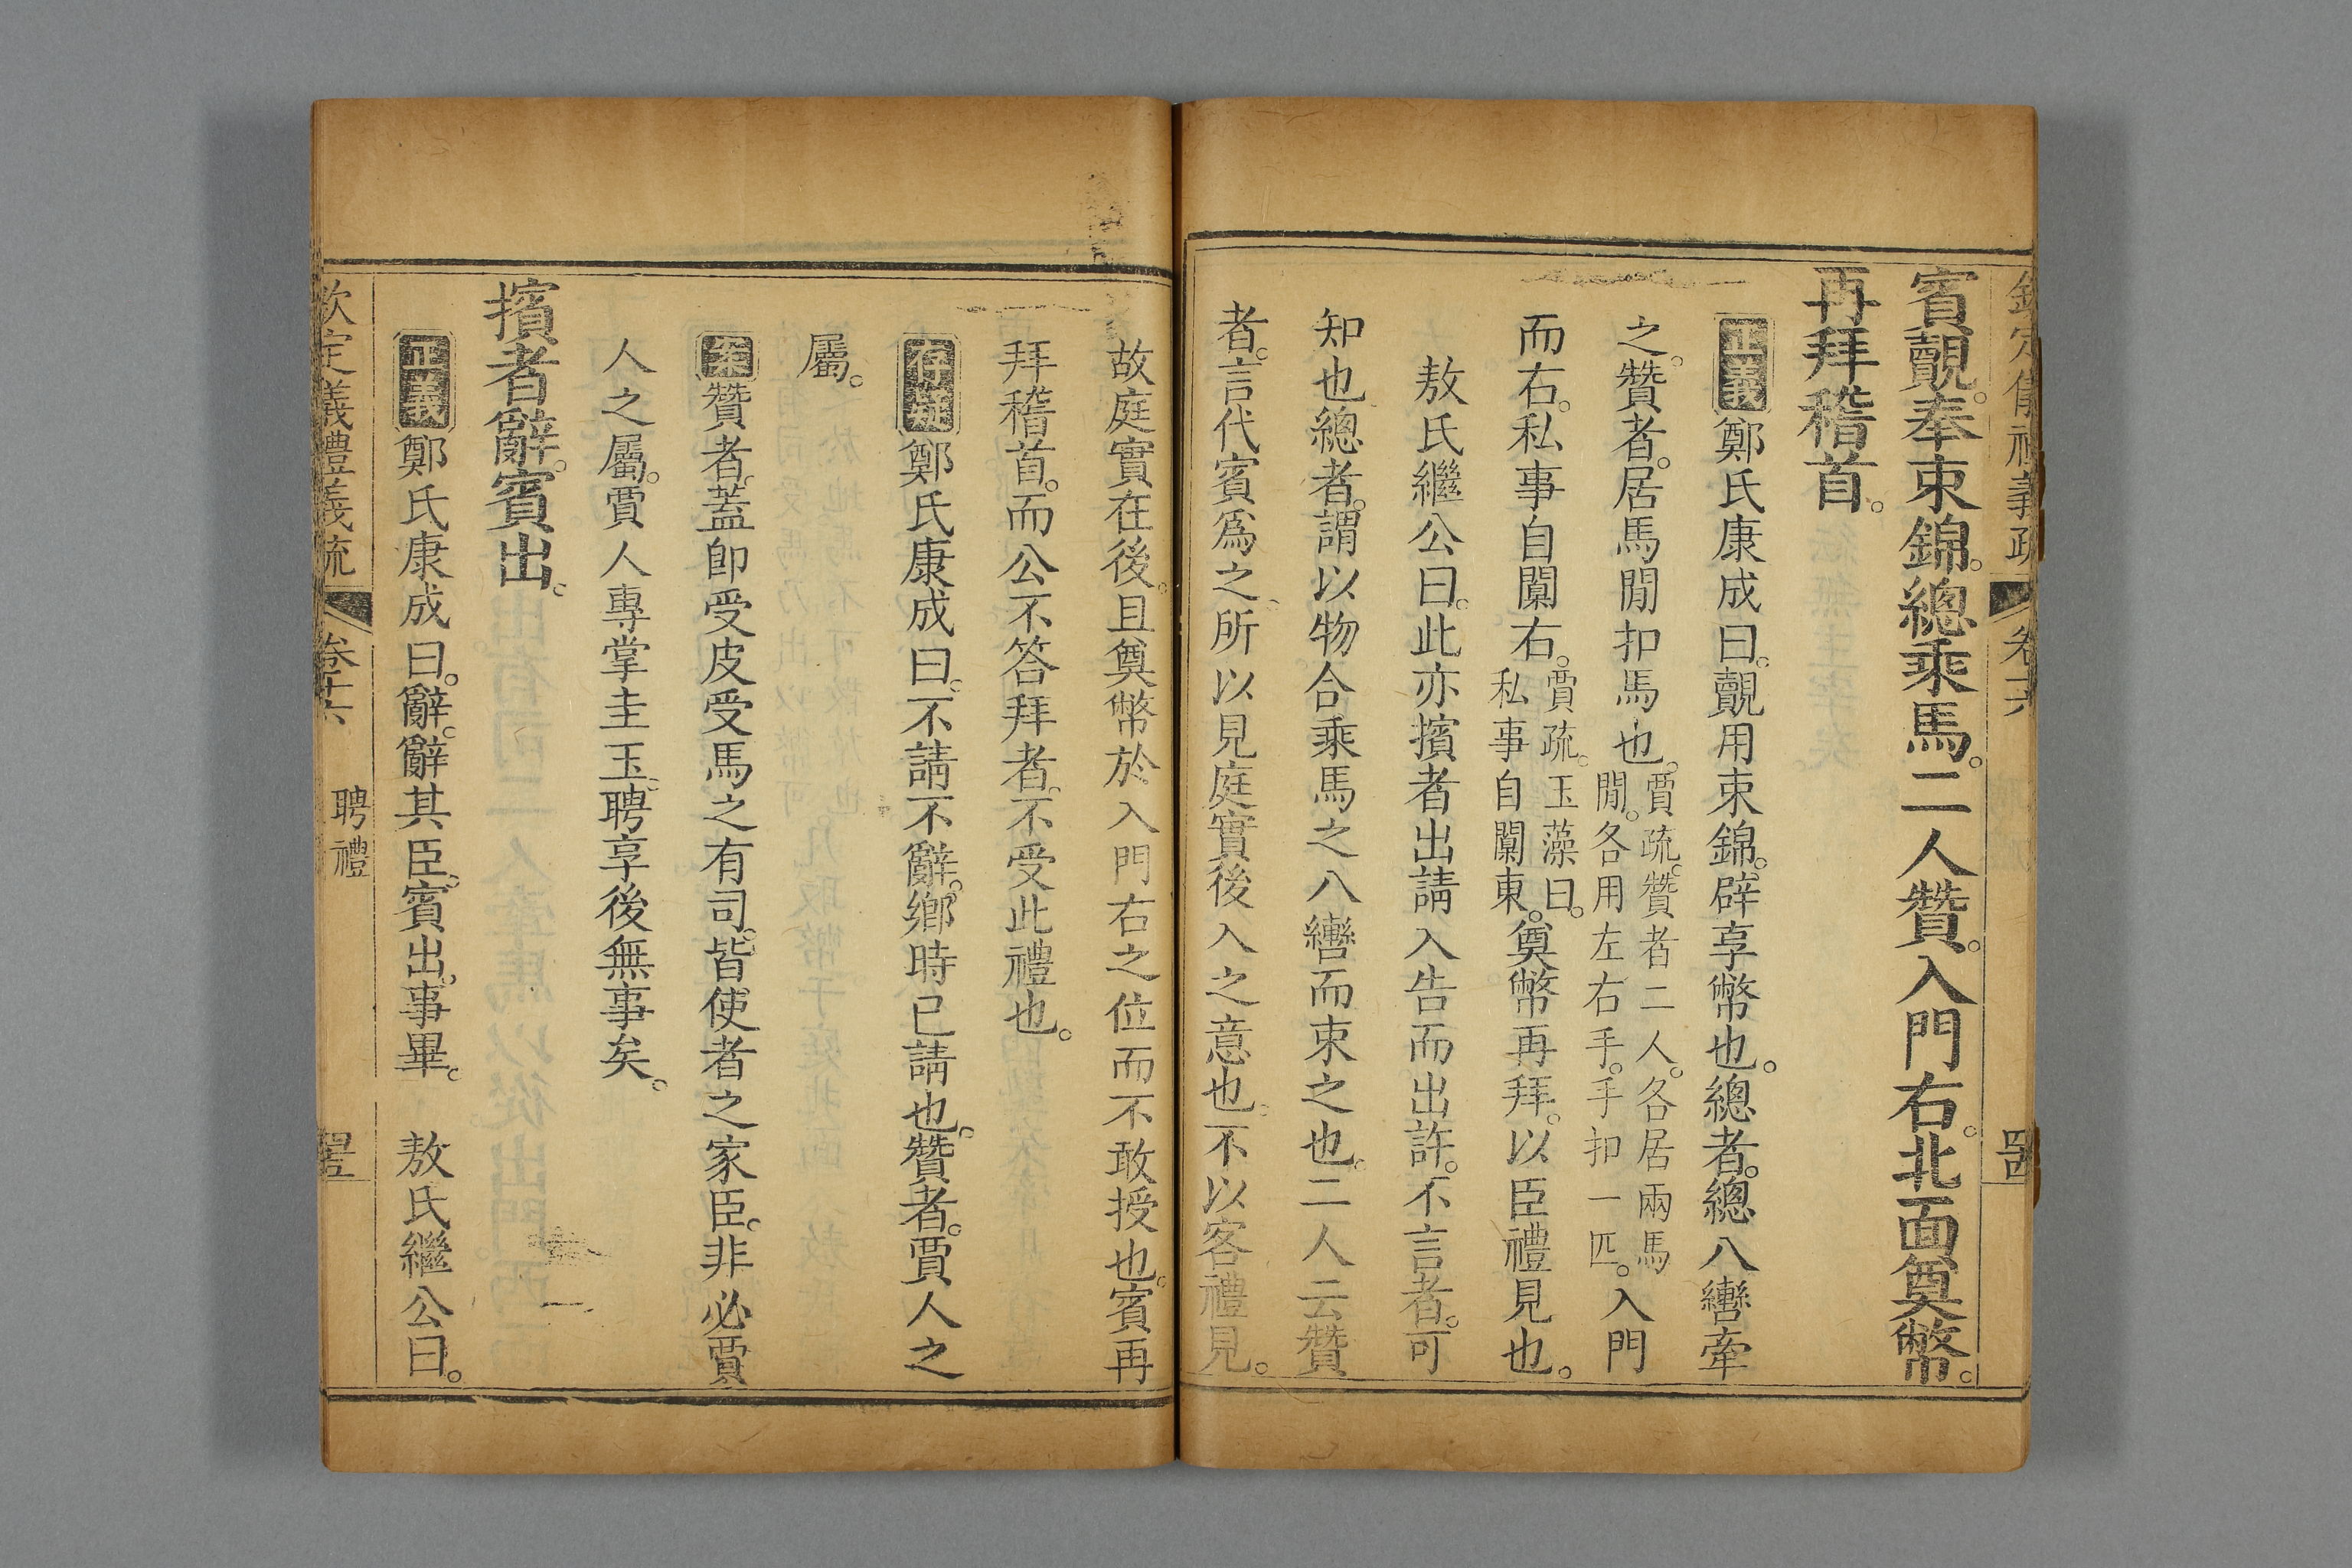 欽定儀禮義疏 卷十六
賓覿。奉束錦。總乘馬。二人贊。入門右。北面奠幣。
再拜稽首。
正義鄭氏康成曰。覿用束錦。辟享幣也。總者。總八轡牽
之。贊者。居馬閒扣馬也。賈疏。贊者二人。各居兩馬閒。各用左右手。手扣一匹。入門
而右。私事自闑右。賈疏。玉藻曰。私事自闑東。奠幣再拜。以臣禮見也。
敖氏繼公曰。此亦擯者出請入告而出許。不言者。可
知也總者。謂以物合乘馬之八轡而束之也。二人云贊
者。言代賓爲之。所以見庭實後入之意也。不以客禮見。
故庭實在後。且奠幣於入門右之位而不敢授也。賓再
拜稽首。而公不答拜者。不受此禮也。
存疑鄭氏康成曰。不請不辭。鄉時已請也。贊者。賈人之
屬。
案贊者。蓋卽受皮受馬之有司。皆使者之家臣。非必賈
人之屬。賈人專掌圭玉。聘享後無事矣。
擯者辭。賓出。
正義鄭氏康成曰。辭。辭其臣。賓出。事畢。 敖氏繼公曰。
欽定義禮義疏 卷十六 聘禮